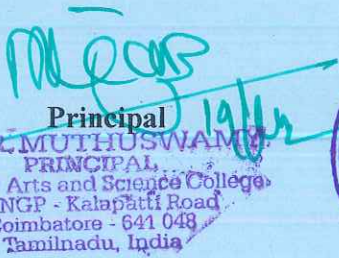 Principal
MUTHUSWAMY
PRINCIPAL
Arts and Science College
NGP - Kalapatti Road
Coimbatore - 641 048
Tamilnadu, India